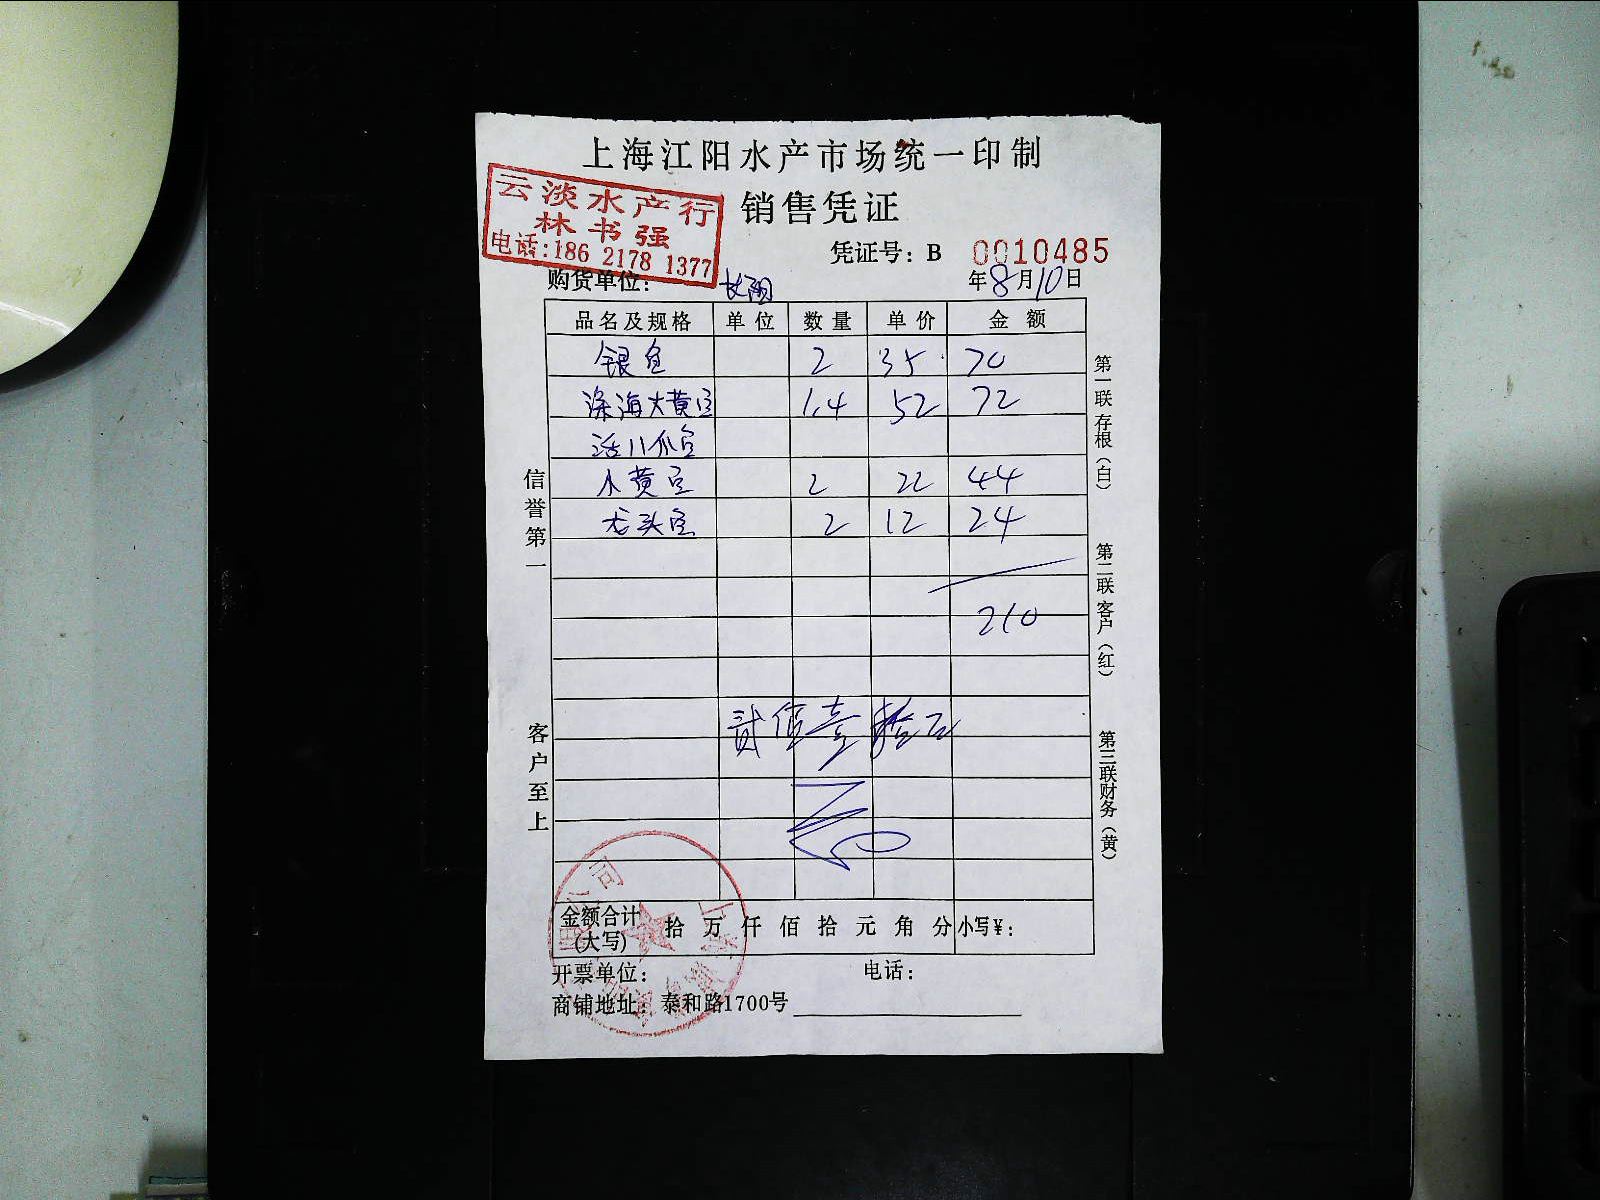 上海江阳水产市场统一印制
云淡水产行
林书强
电话:186 2178 1377
销售凭证
凭证号：B 0010485
购货单位： 长阳 年8月10日
品名及规格 单位 数量 单价 金额
银鱼 2 35 70
深海大黄鱼 1.4 52 72
活八爪鱼
小黄鱼 2 22 44
龙头鱼 2 12 24
210
贰佰壹拾元
金额合计(大写) 拾 万 仟 佰 拾 元 角 分 小写￥：
开票单位： 电话：
商铺地址：泰和路1700号
信誉第一
客户至上
第一联存根（白）
第二联客户（红）
第三联财务（黄）